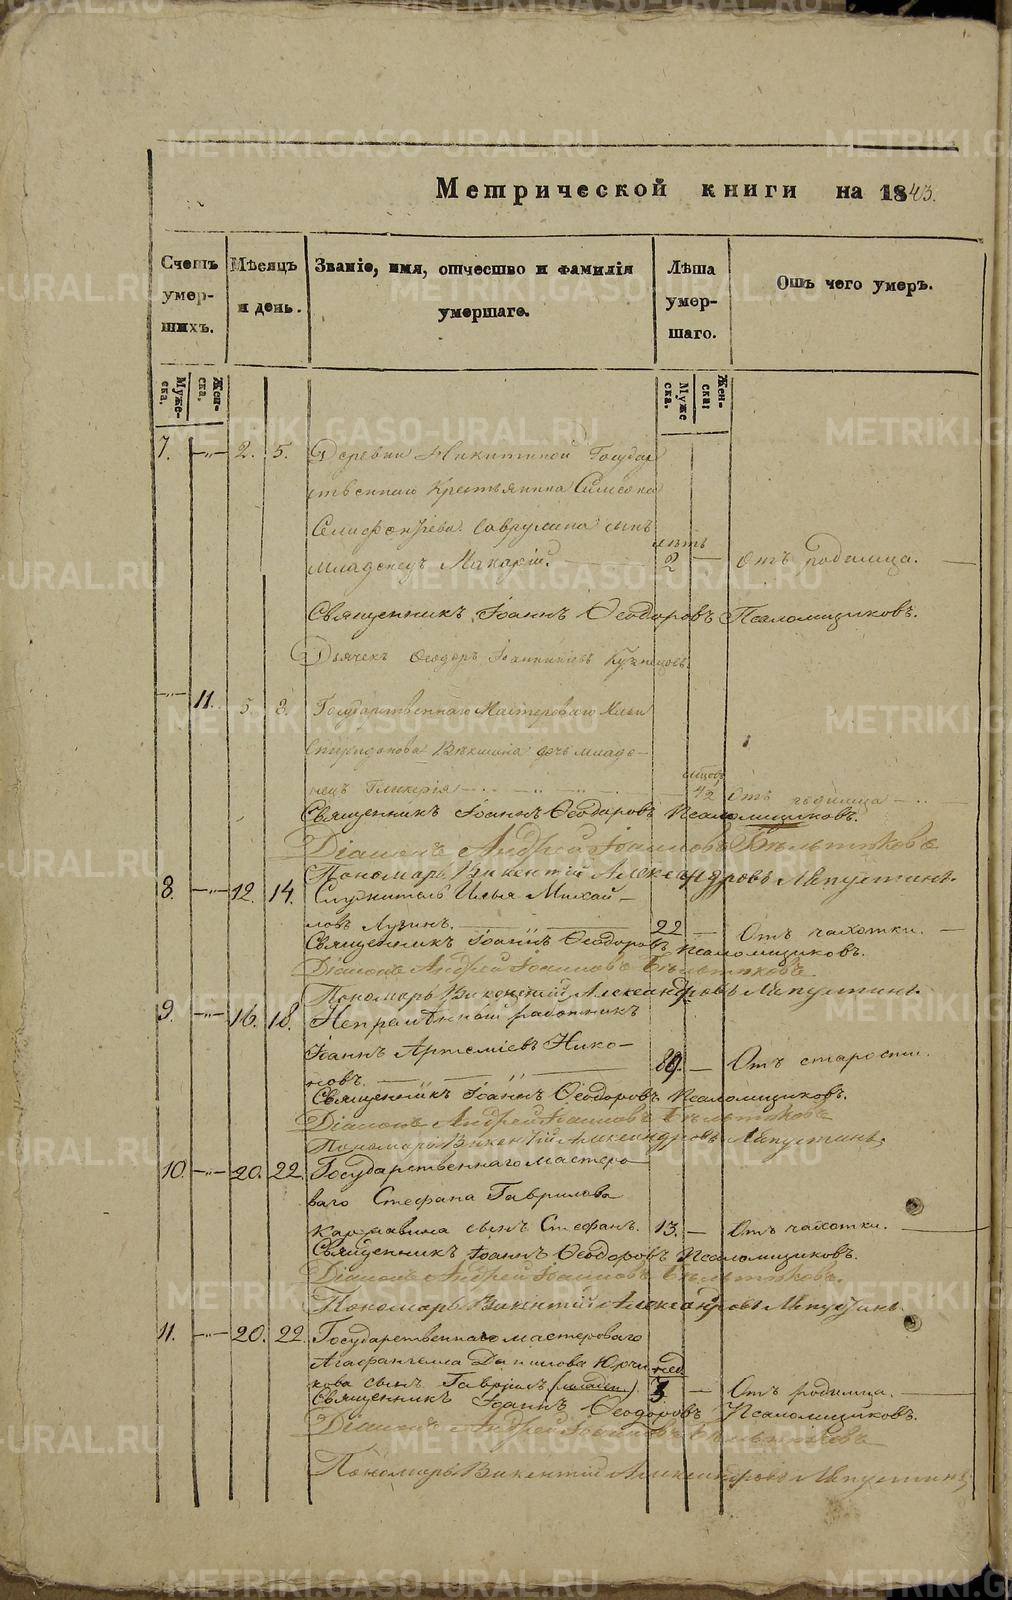 Метрической книги на 1843.
Счетъ умер-шихъ.
Мѣсяцъ и день.
Званіе, имя, отчество и фамилія умершаго.
Лѣта умер-шаго.
Отъ чего умеръ.
Муже-ска.
Жен-ска.
Муже ска.
Жен-ска:
7. 2. 5. Деревни Никитиной Государ
ственнаго крестьянина Симеона
сынъ
лѣтъ
младенецъ Макарій. 2 — отъ родимца.
Священникъ Іоаннъ Ѳеодоровъ Псаломщиковъ.
Дьячекъ Ѳеодоръ Іоанникіевъ Кузнецовъ.
11. 5. 8. Государственнаго Мастероваго Ильи
Спиридонова Вѣкшина дочь младе-
нецъ Гликерія 1/2 Отъ родимца
Священникъ Іоаннъ Ѳеодоровъ Псаломщиковъ.
Діаконъ Андрей Іоанновъ Бѣльтюковъ
Пономарь Викентій Александровъ Ляпустинъ.
8. 12. 14. Служитель Илья Михай-
ловъ Лузинъ. 22 — Отъ чахотки.
Священникъ Іоаннъ Ѳеодоровъ Псаломщиковъ.
Діаконъ Андрей Іоанновъ Бѣльтюковъ
Пономарь Викентій Александровъ Ляпустинъ.
9. 16. 18. Непремѣнный работникъ
Іоаннъ Артеміевъ Нико-
новъ. 89. — Отъ старости.
Священникъ Іоаннъ Ѳеодоровъ Псаломщиковъ.
Діаконъ Андрей Іоанновъ Бѣльтюковъ
Пономарь Викентій Александровъ Ляпустинъ.
10. 20. 22. Государственнаго мастеро
ваго Стефана Гаврилова
сынъ Стефанъ. 13. — Отъ чахотки.
Священникъ Іоаннъ Ѳеодоровъ Псаломщиковъ.
Діаконъ Андрей Іоанновъ Бѣльтюковъ.
Пономарь Викентій Александровъ Ляпустинъ.
11. 20. 22. Государственнаго мастероваго
Агафангела Данилова
нед.
кова сынъ Гавріилъ (младен.). 3 — Отъ родимца.
Священникъ Іоаннъ Ѳеодоровъ Псаломщиковъ.
Діаконъ Андрей Іоанновъ Бѣльтюковъ
Пономарь Викентій Александровъ Ляпустинъ
METRIKI.GASO-URAL.RU